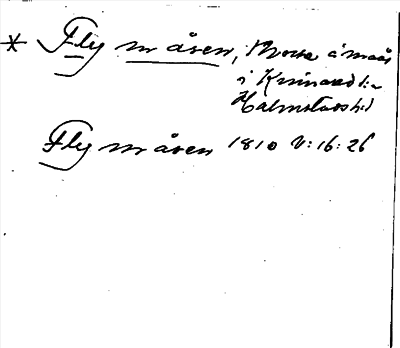 * Fly måsen, Mosse å maås
i Kvinared s:n
Halmstads hd
Fly måsen 1810 V:16:26